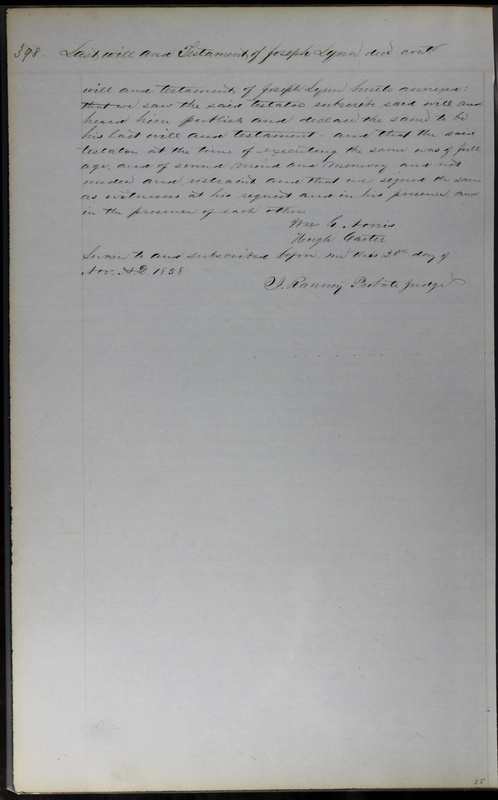 398 Last will and Testament of Joseph Lynn decd contd
will and testament of Joseph Lynn hereto annexed;
that we saw the said testator subscribe said will and
heard him publish and declare the same to be
his last will and testament. and that the said
testator at the time of executing the same was of full
age, and of sound mind and memory and not
under and restraint, and that we signed the same
as witnesses at his request and in his presence and
in the presence of each other
Wm G. Norris
Hugh Carter
Sworn to and subscribed before me this 20th day of
Nov. AD 1858
J. Ranney Probate Judge
25